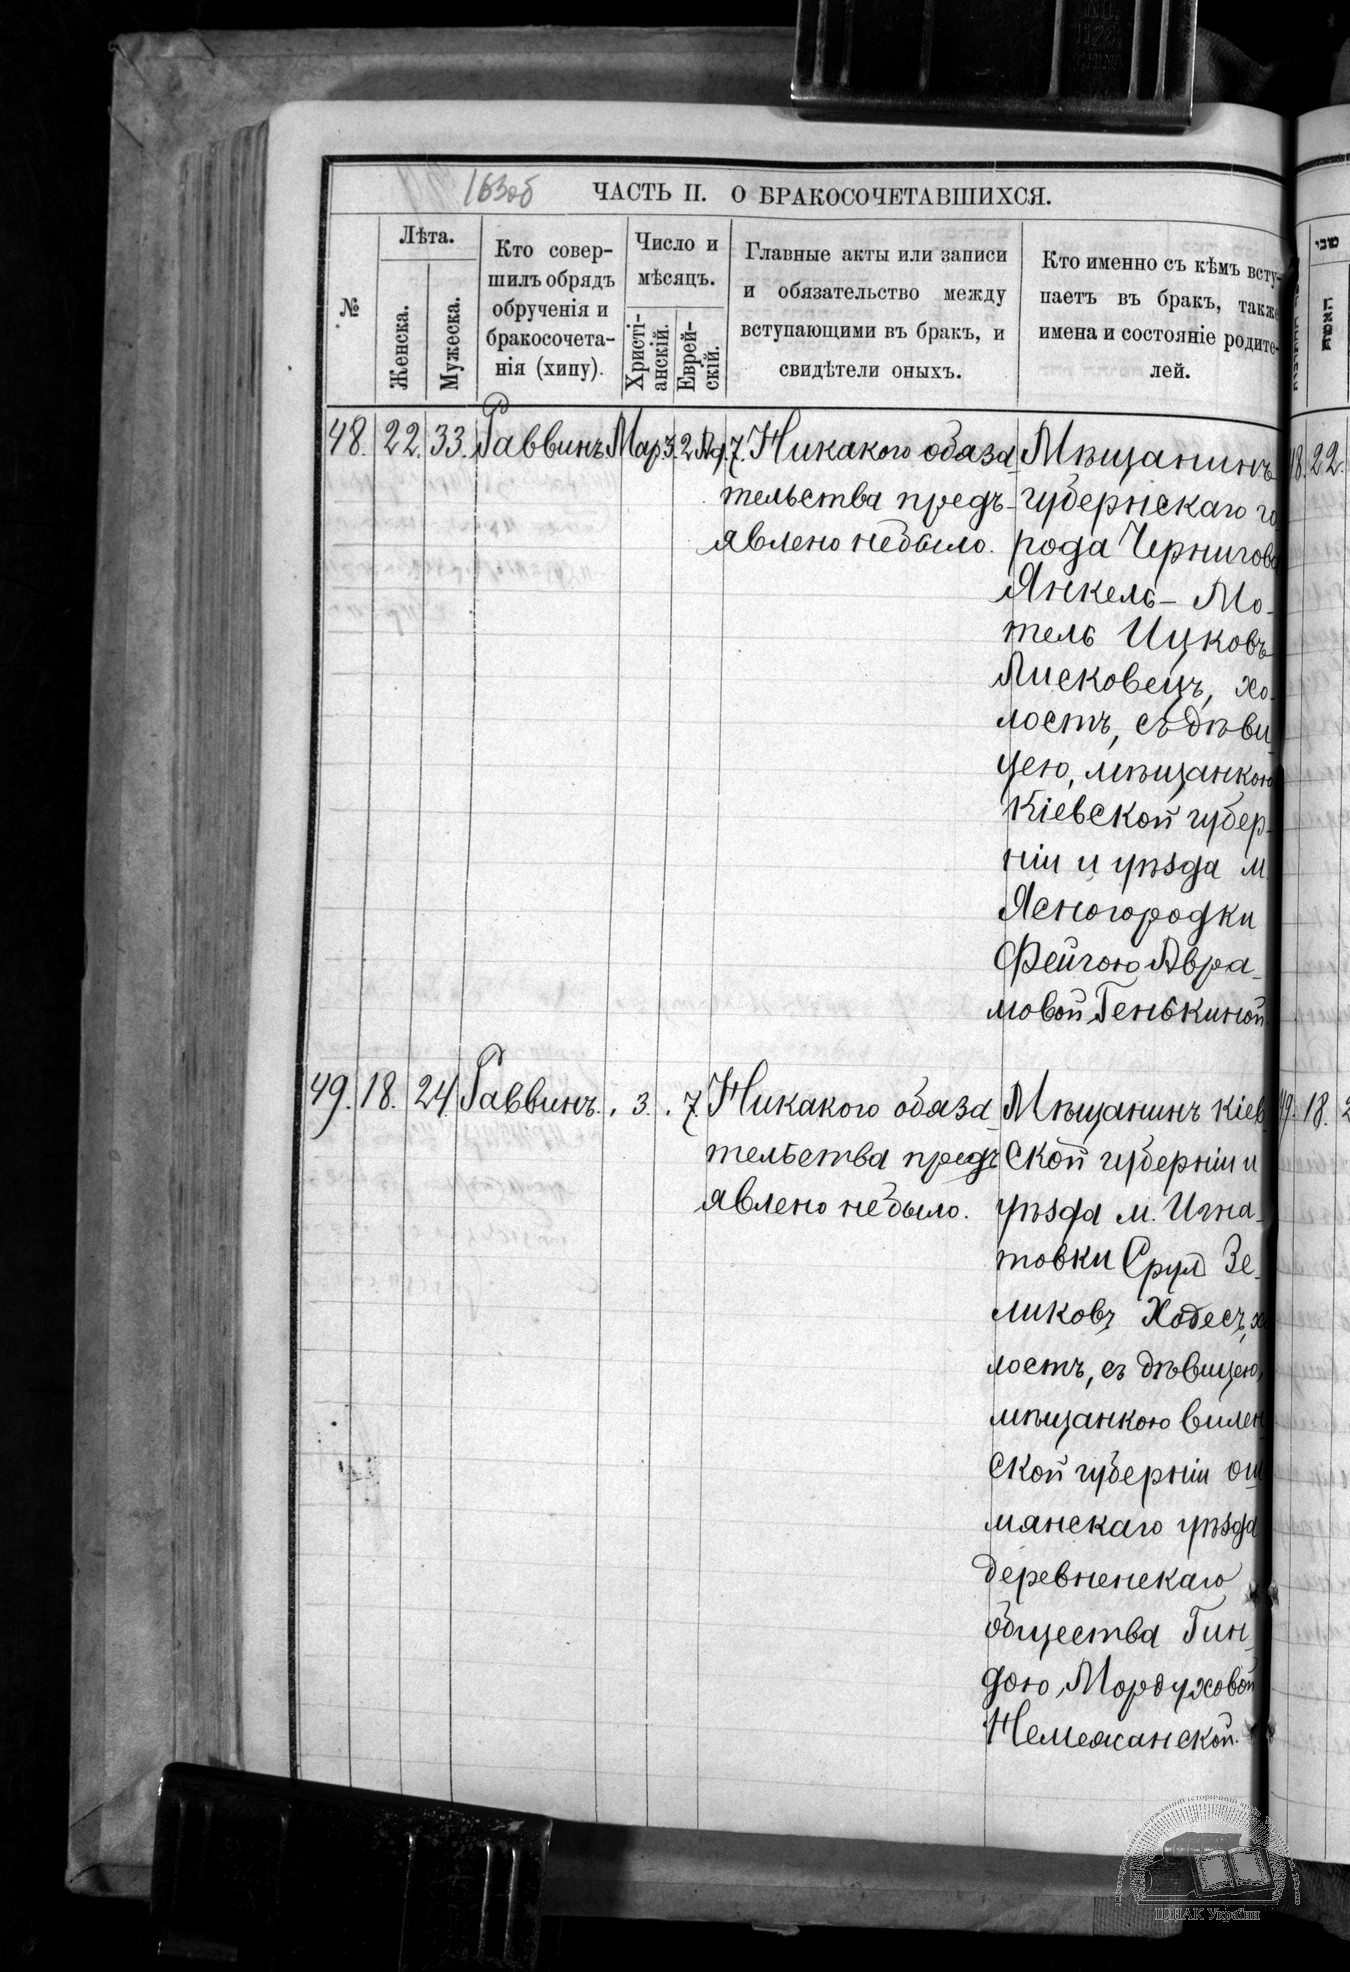 163об
ЧАСТЬ II. О БРАКОСОЧЕТАВШИХСЯ.
№
Лѣта.
Женска.
Мужеска.
Кто совер-
шилъ обрядъ
обрученія и
бракосочета-
нія (хипу).
Число и
мѣсяцъ.
Христі-
анскій.
Еврей-
скій.
Главные акты или записи
и обязательство между
вступающими въ бракъ, и
свидѣтели оныхъ.
Кто именно съ кѣмъ всту-
паетъ въ бракъ, также
имена и состояніе родите-
лей.
48. 22. 33. Раввинъ Мар. 3. 7. Никакого обяза-
тельства предъ-
явлено небыло.
Мѣщанинъ
губернскаго го-
рода Чернигова
Янкель-Мо-
тель Ицковъ
Лисковецъ, хо-
лостъ, съ дѣви
цею, мѣщанкою
Кіевской губер-
ніи и уѣзда м.
Ясногородки
Фейгою Авра-
мовой Генькиной.
49. 18. 24. Раввинъ. . 3. . 7. Никакого обяза-
тельства предъ
явлено небыло.
Мѣщанинъ Кіев-
ской губерніи и
уѣзда м. Игна-
товки Срул Зе-
ликовъ Ходесъ, хо
лостъ, съ дѣвицею,
мѣщанкою Вилен-
ской губерніи Ош-
мянскаго уѣзда
деревненскаго
общества Гин-
дою Мордуховой
Немежанской.
18. 22.
49. 18. 2
האשה
ЦДІАК України